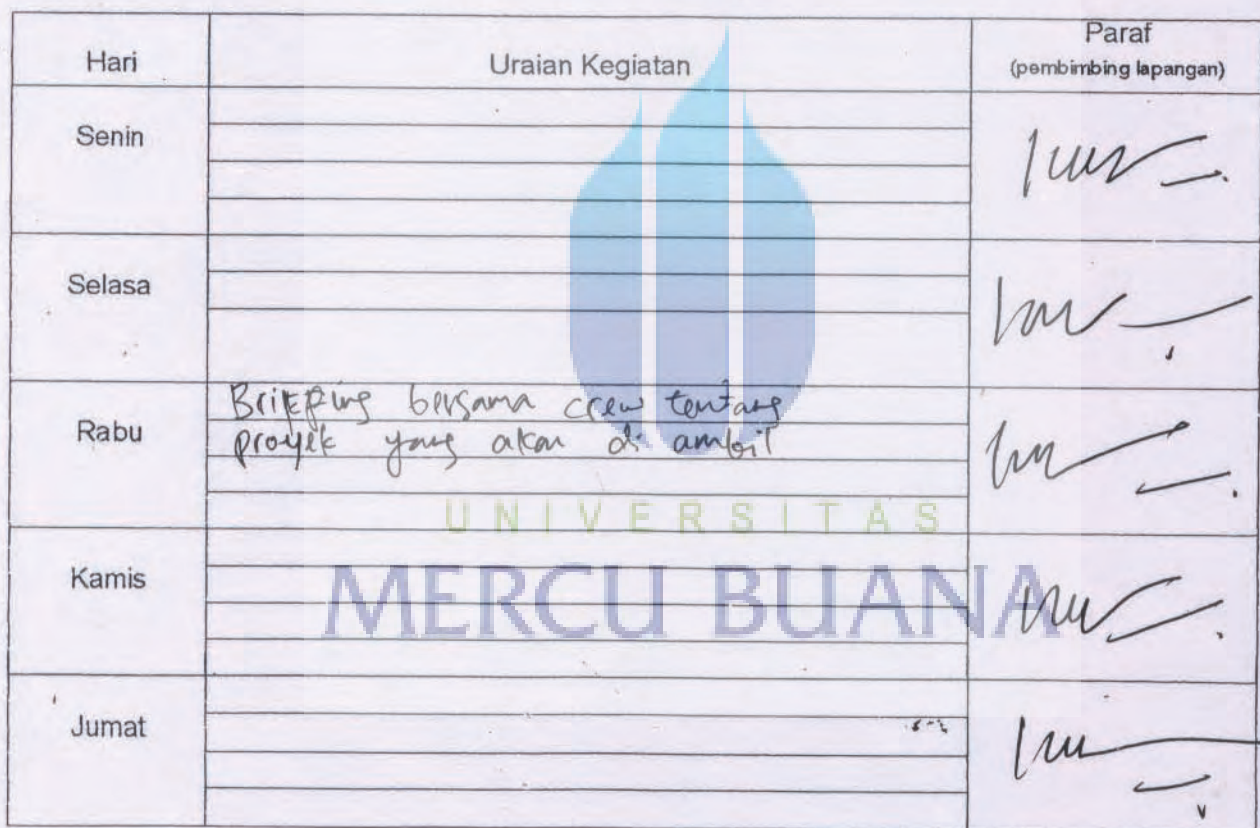 Hari Uraian Kegiatan Paraf
(pembimbing lapangan)
Senin
Selasa
Rabu
Briefing bersama crew tentang
proyek yang akan di ambil
UNIVERSITAS
Kamis
MERCU BUANA
Jumat